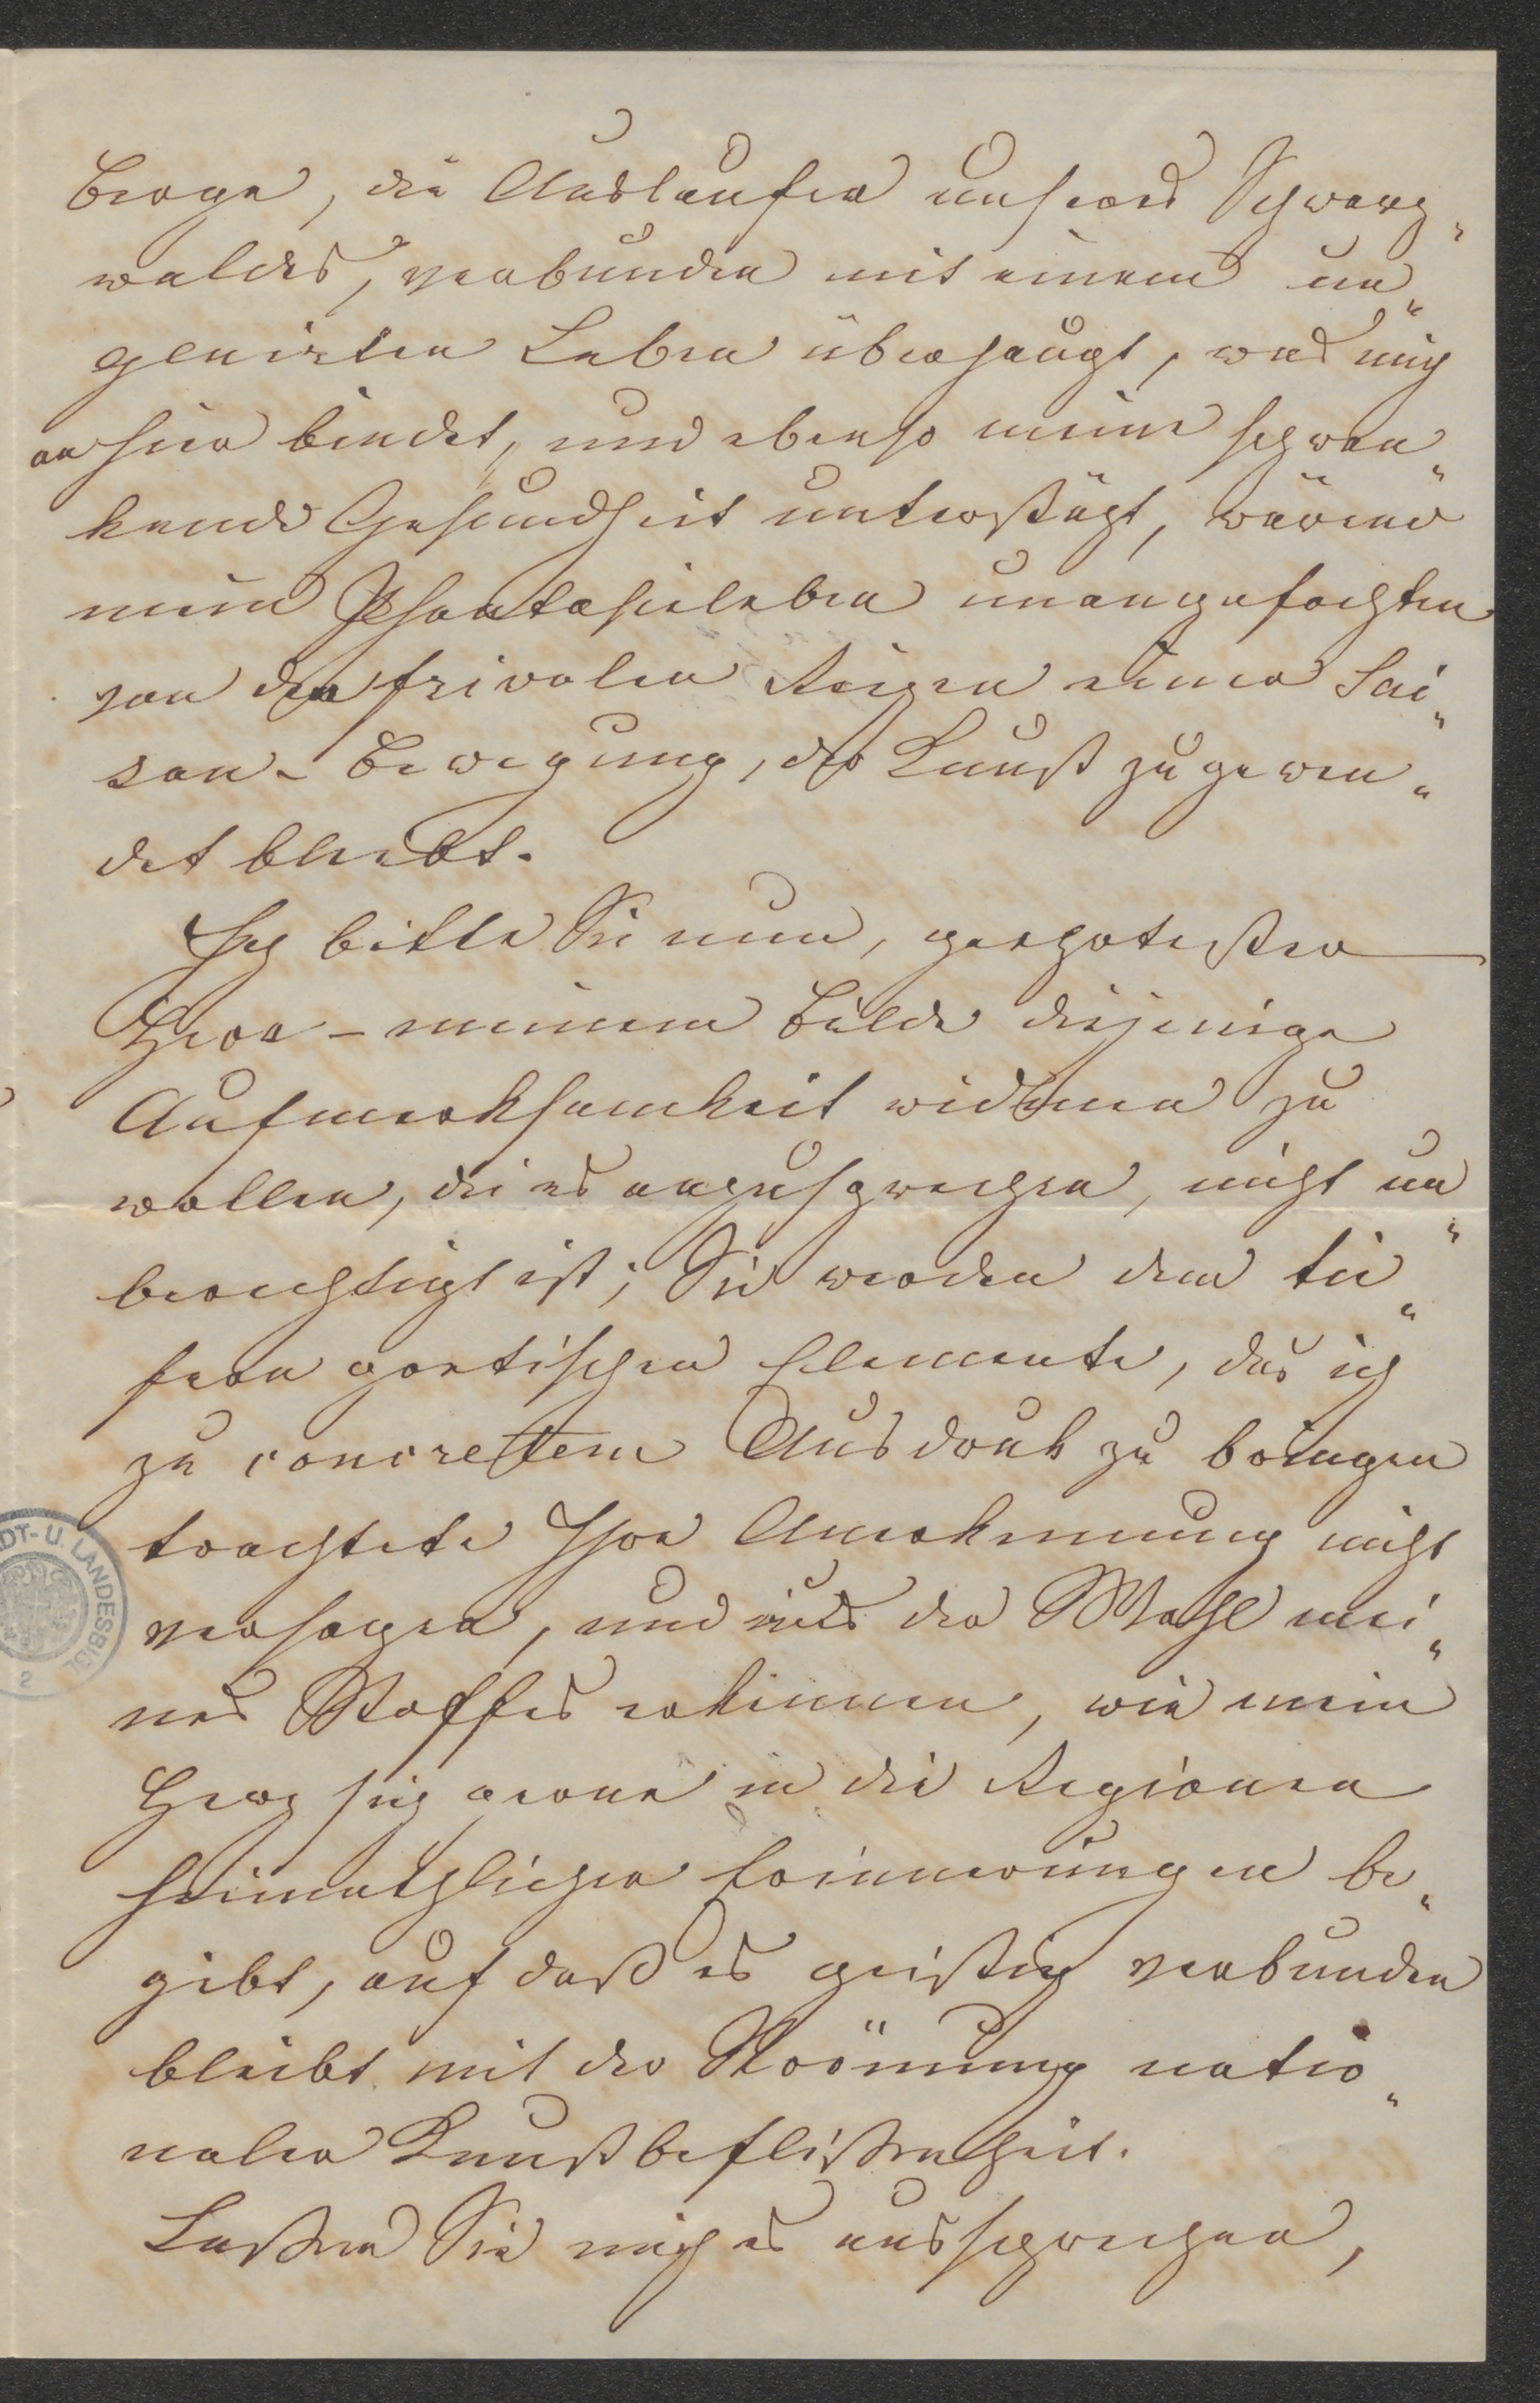 Berge, die Ausläufer unseres Schwarz„
waldes, verbunden mit einem un„
genirten Leben überhaupt, was mich
an hier bindet, und ebenso meine schwan„
kende Gesundheit unterstüzt, wärend
mein Phantasieleben unangefochten
von den frivolen Reizen einer Sai„
son-Bewegung, der Kunst zugewen„
det bleibt.
Ich bitte Sie nun, geehrtester
Herr – meinem Bilde diejenige
Aufmerksamkeit widmen zu
wollen, die es anzusprechen, nicht un„
berechtigt ist; Sie werden dem tie„
fern poetischen Elemente, das ich
zu concrettem Ausdruk zu bringen
trachtete Ihre Anerkennung nicht
versagen, und aus der Wahl mei„
nes Stoffes erkennen, wie mein
Herz sich gerne in die Regionen
heimathlicher Erinnerungen be„
gibt, auf daß es geistig verbunden
bleibt mit der Strömung natio„
naler Kunstbeflißenheit.
Laßen Sie mich es aussprechen,
DT- U. LANDESBIBL
2